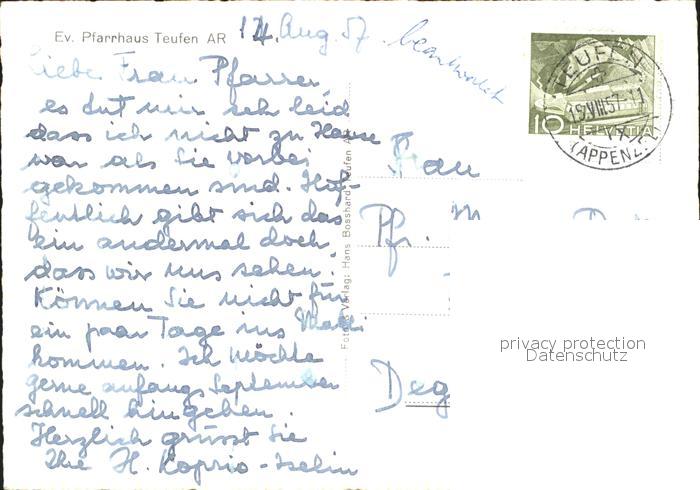 Ev. Pfarrhaus Teufen AR
14. Aug. 57.
beantwortet
Liebe Frau Pfarrer,
es tut mir seh leid
dass ich nicht zu Hause
war als Sie vorbei
gekommen sind. Hof-
fentlich gibt sich das
ein andermal doch,
dass wir uns sehen.
Können Sie nicht für
ein paar Tage ins
kommen. Ich möchte
gerne anfangs September
schnell hingehen.
Herzlich grüsst Sie
Ihre H. Koprio-Iselin
Foto & Verlag: Hans Bosshard, Teufen A
Frau
Pfr. M
Deg
TEUFEN
15.VIII.57-11
(APPENZELL)
10 HELVETIA
privacy protection
Datenschutz